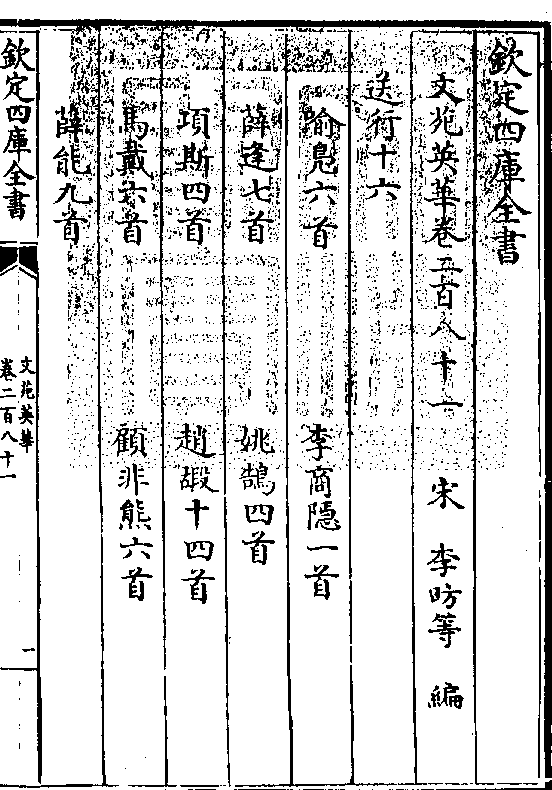 欽定四庫全書
文苑英華卷二百八十一 宋 李昉等 編
送行十六
喻鳧六首 李商隱一首
薛逢七首 姚鵠四首
項斯四首 趙嘏十四首
馬戴六首 顧非熊六首
薛能九首
欽定四庫全書
文苑英華
卷二百八十一
一